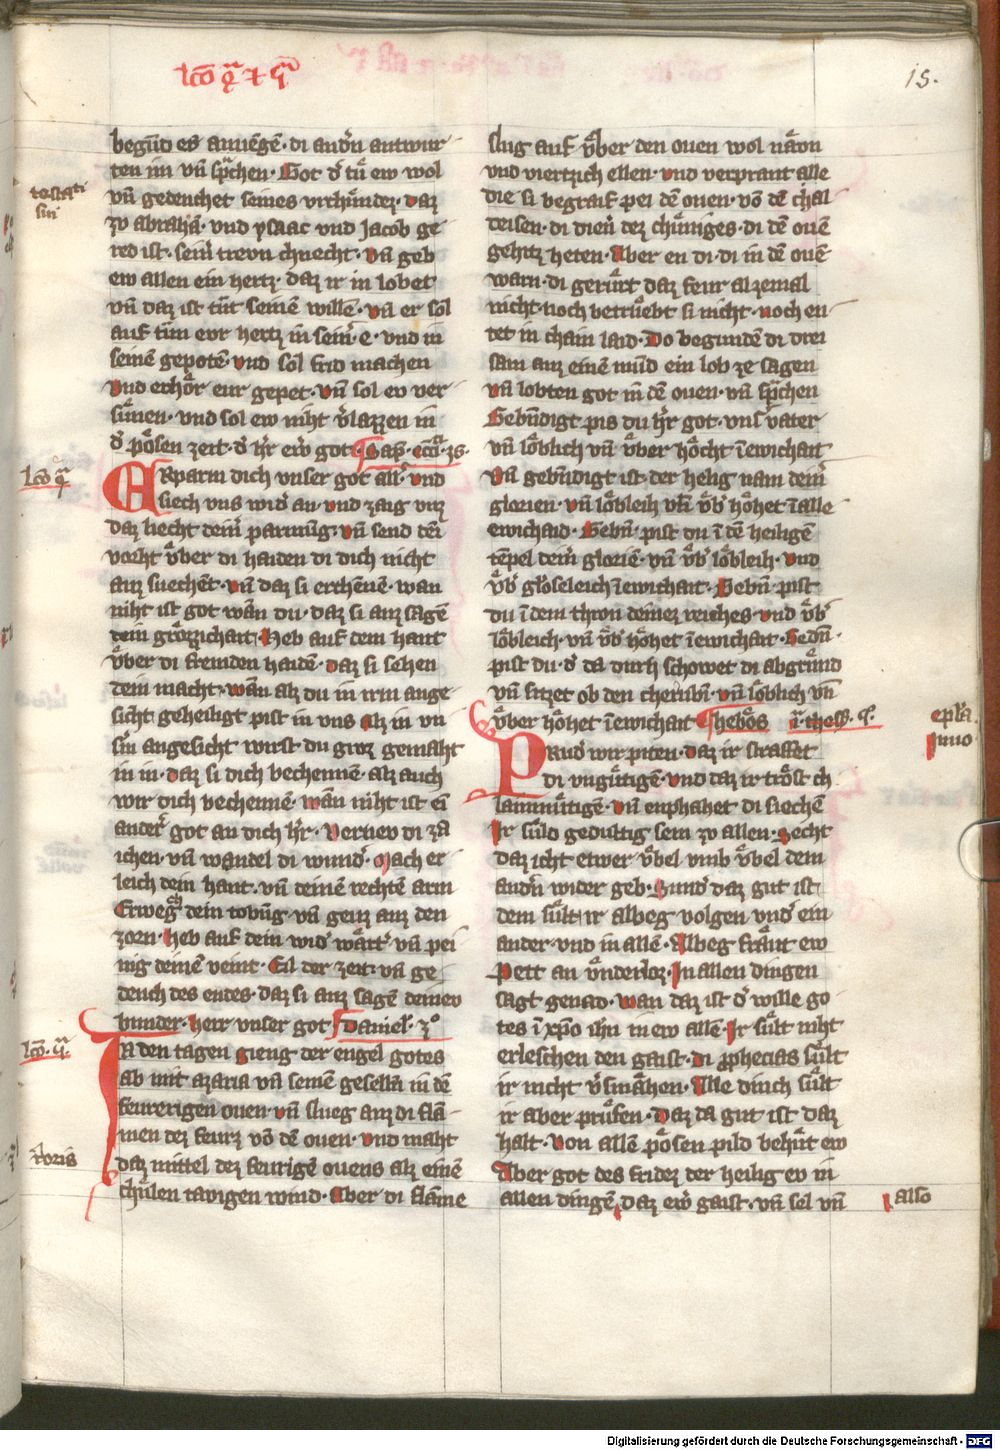 lcō q̄ᵃ et q̄ᵃ
15.
begūd es anuēgē· di and͛n antwur
ten im vn̄ spͣchen· Got d͛ tů ew wol
vn̄ gedenchet seines vrchůndez· daz
zv abrahā· vnd ysaac vnd Jacob ge
red ist· sein͛ trevn chnecht· vn̄ geb
ew allen ein hertz· daz ir in lobet
vn̄ daz ist tůt seinē willē· vn̄ er sol
auf tun evr hertz in sein͛ e· vnd in
seinē gepotē· vnd sol frid machen
vnd erhôr eur gepet· vn̄ sol ev ver
sůnen· vnd sol ew niht v͛lazzen in
d͛ pôsen zeit· d͛ h͛r ew͛ got·
lcō q̄ᵃ
ERparm dich vnser got all͛· vnd
siech vns wid͛ an· vnd zaig vnz
daz liecht dein͛ parmūg· vn̄ send dei
vorht vͤber di haiden di dich nicht
anz suechēt· vn̄ daz si erchēnē· wan
niht ist got wān du· daz si anz sagē
dein grôzzichait· Heb auf dein hant
vͤber di fremden haidē· daz si sehen
dein macht· wān alz du in irm ange
sicht geheiligt pist in vns Alz in vn
s͛m angesicht wirst du groz gemaht
in in· daz si dich bechennē· alz auch
wir dich bechennē· wān niht ist ei
ander͛ got an dich h͛r· Vernev di za
ichen· vn̄ wandel di wund͛· Mach er
leich dein hant· vn̄ deinē rechtē arm
Erweg dein tobūg· vn̄ geuz auz den
zorn· heb auf dein wid͛ wårt͛· vn̄ pei
nig deinē veint· Eil der zeit· vn̄ ge
dench des endes· daz si auz sagē deinev
wunder· herr vnser got Daniel· 3°
In den tagen gieng der engel gotes
ab mit azaria vn̄ seinē geselln̄ in dē
feurerigen ouen vn̄ slueg auz di flā
men dez feurz vō dē ouen· vnd maht
daz mittel dez feurigē ouens alz einē
chůlen tavigen wind· Aber di flāme
slug auf vͤber den ouen wol naͤvn
vnd viertzich ellen· vnd verprant alle
die si begraif pei dē ouen· vō dē chal
deisen· di dien͛ dez chůniges· di dē ouē
gehitz heten· Aber en di di in dē ouē
warn· di gerůrt daz feur alzemal
nicht· noch betrůebt si nicht· noch en
tet in chain laid· Do begundē di drei
sam auz einē mūd ein lob ze sagen
vn̄ lobten got in dē ouen· vn̄ spͣchen
Gebn̄digt pis du h͛r got· vns͛ vater
vn̄ lôblich vn̄ vͤber hôcht īewichait
vn̄ gebn̄digt ist der heilig nam dein͛
glorien· vn̄ lôbleih vn̄ vͤb͛ hôhet īalle
ewichaid· Gebn̄· pist du ī dē heiligē
tēpel dein͛ gloriē· vn̄ vͤb͛ lôbleih· vnd
vͤb͛ glôseleich īewichait· Gebn̄ pist
du ī dem thron deinez reiches· vnd vͤb͛
lôbleich· vn̄ vͤb͛ hôhet īewichait· Gebn̄·
pist du· d͛ da durh schowet di abgrůnd
vn̄ sitzet ob den cherubī· vn̄ lôblich vn̄
vͤber hôhet īewichait
PRud͛ wir piten· daz ir straffet
di vngůtigē· vnd daz ir trôst ch
lainmůtigē· vn̄ enphahet di siechē
Ir sůld gedultig sein zv allen· Secht
daz icht etwer vͤbel vmb vͤbel dem
and͛n wider geb· Sund͛ daz gut ist
dem sůlt ir albeg volgen vnd͛ ein
ander· vnd in allē· Albeg fråut ew
Pett an vͤnderloz· In allen dingen
sagt genad· wan daz ist d͛ wille go
tes ī xp̄o ih̄u in ew allē· Ir sůlt niht
erleschen den gaist· di prophecias sůlt
ir nicht v͛småhen· Alle dinch sůlt
ir aber průfen· Daz da gut ist daz
halt· Von allē pôsen pild behůt ew
Aber got des fridez der heilig ev in
allen dingē daz ew͛ gaist· vn̄ sel vn̄
also